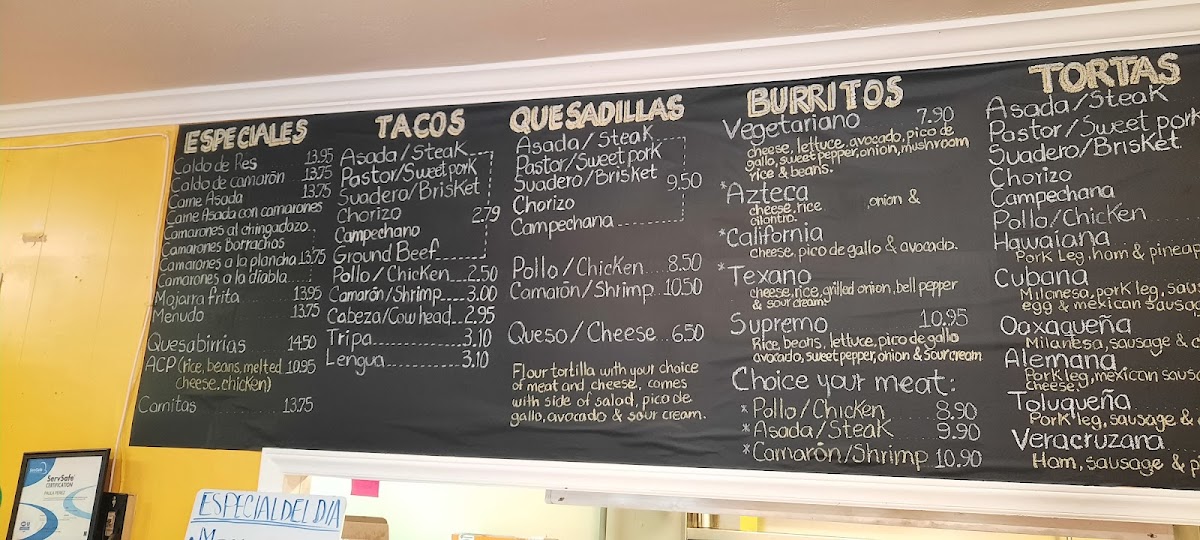 ESPECIALES
Caldo de Res 13.95
Caldo de camarón 13.75
Carne Asada 13.75
Carne Asada con camarones
Camarones al chingadazo
Camarones Borrachos
Camarones a la plancha 13.75
Camarones a la diabla
Mojarra Frita 13.95
Menudo 13.75
Quesabirrias 14.50
ACP (rice, beans, melted 10.95
cheese, chicken)
Carnitas 13.75
TACOS
Asada/Steak
Pastor/Sweet pork
Suadero/Brisket
Chorizo 2.79
Campechano
Ground Beef
Pollo/Chicken 2.50
Camarón/Shrimp 3.00
Cabeza/Cow head 2.95
Tripa 3.10
Lengua 3.10
QUESADILLAS
Asada/Steak
Pastor/Sweet pork
Suadero/Brisket 9.50
Chorizo
Campechana
Pollo/Chicken 8.50
Camarón/Shrimp 10.50
Queso/Cheese 6.50
Flour tortilla with your choice
of meat and cheese, comes
with side of salad, pico de
gallo, avocado & sour cream.
BURRITOS
Vegetariano 7.90
cheese, lettuce, avocado, pico de
gallo, sweet pepper, onion, mushroom
rice & beans.
*Azteca
cheese, rice onion &
cilantro.
*California
cheese, pico de gallo & avocado.
*Texano
cheese, rice, grilled onion, bell pepper
& sour cream.
Supremo 10.95
Rice, beans, lettuce, pico de gallo
avocado, sweet pepper, onion & sour cream
Choice your meat:
*Pollo/Chicken 8.90
*Asada/Steak 9.90
*Camarón/Shrimp 10.90
TORTAS
Asada/Steak
Pastor/Sweet pork
Suadero/Brisket
Chorizo
Campechana
Pollo/Chicken
Hawaiana
Pork Leg, ham & pineap
Cubana
Milanesa, pork leg, saus
egg & mexican sausa
Oaxaqueña
Milanesa, sausage & c
Alemana
Pork leg, mexican sausa
cheese
Toluqueña
Pork leg, sausage &
Veracruzana
Ham, sausage & p
ServSafe
CERTIFICATION
ESPECIAL DEL DIA